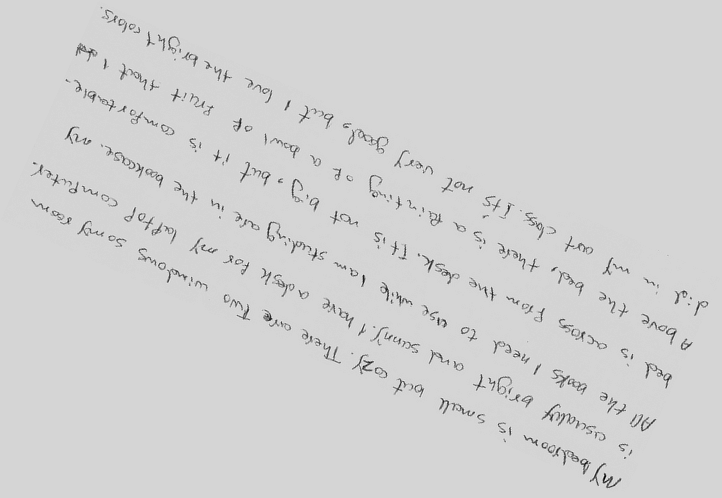 My bedroom is small but cozy. There are Two windows somy room
is usually bright and sunny. I have a desk for my laptop computer.
All the books I need to use while I am studing are in the bookcase. my
bed is across from the desk. It is not big, but it is comfortable.
Above the bed, there is a Painting of a bowl of fruit that I
did in my art class. Its not very good, but I love the bright colors.